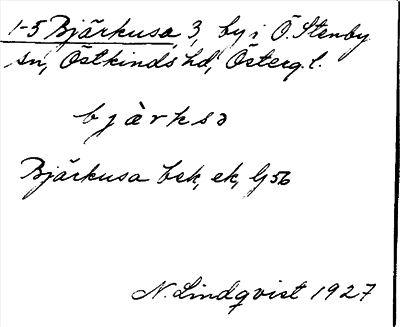 1-5 Bjärkusa, 3, by i Ö. Stenby
sn, Östkinds hd, Österg. l.
bjàrksə
Bjärkusa bek, ek, G 56
N. Lindqvist 1927